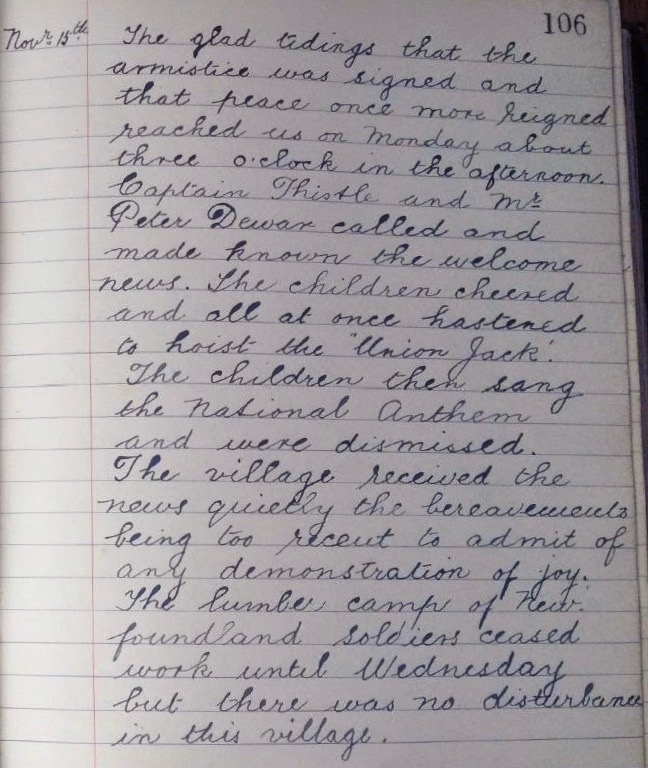 106
Novr. 15th The glad tidings that the
armistice was signed and
that peace once more reigned
reached us on Monday about
three o'clock in the afternoon.
Captain Thistle and Mr
Peter Dewar called and
made known the welcome
news. The children cheered
and all at once hastened
to hoist the "Union Jack".
The children then sang
the National Anthem
and were dismissed.
The village received the
news quietly the bereavements
being too recent to admit of
any demonstration of joy.
The lumber camp of New-
foundland soldiers ceased
work until Wednesday
but there was no disturbance
in this village.